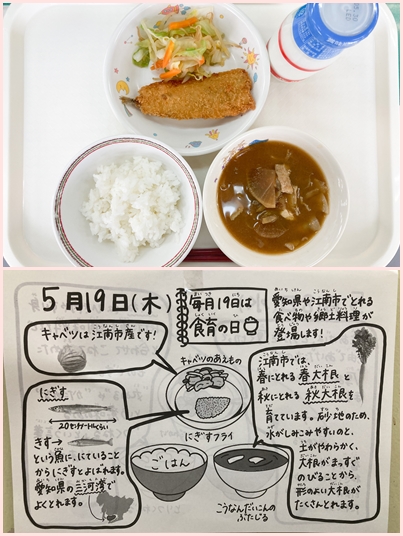 5月19日(木)
毎月19日は
食育の日
愛知県や江南市でとれる
食べ物や郷土料理が
登場します!
キャベツは江南市産です!
キャベツのあえもの
にぎす
20センチメートルくらい
きす→
という魚に、にていること
からにぎすとよばれます。
愛知県の三河湾で
よくとれます。
にぎすフライ
ごはん
こうなんだいこんの
ぶたじる
江南市では、
春にとれる春大根と
秋にとれる秋大根を
育てています。砂地のため、
水がしみこみやすいのと、
土がやわらかく、
大根がまっすぐ
のびることから、
形のよい大根が
たくさんとれます。